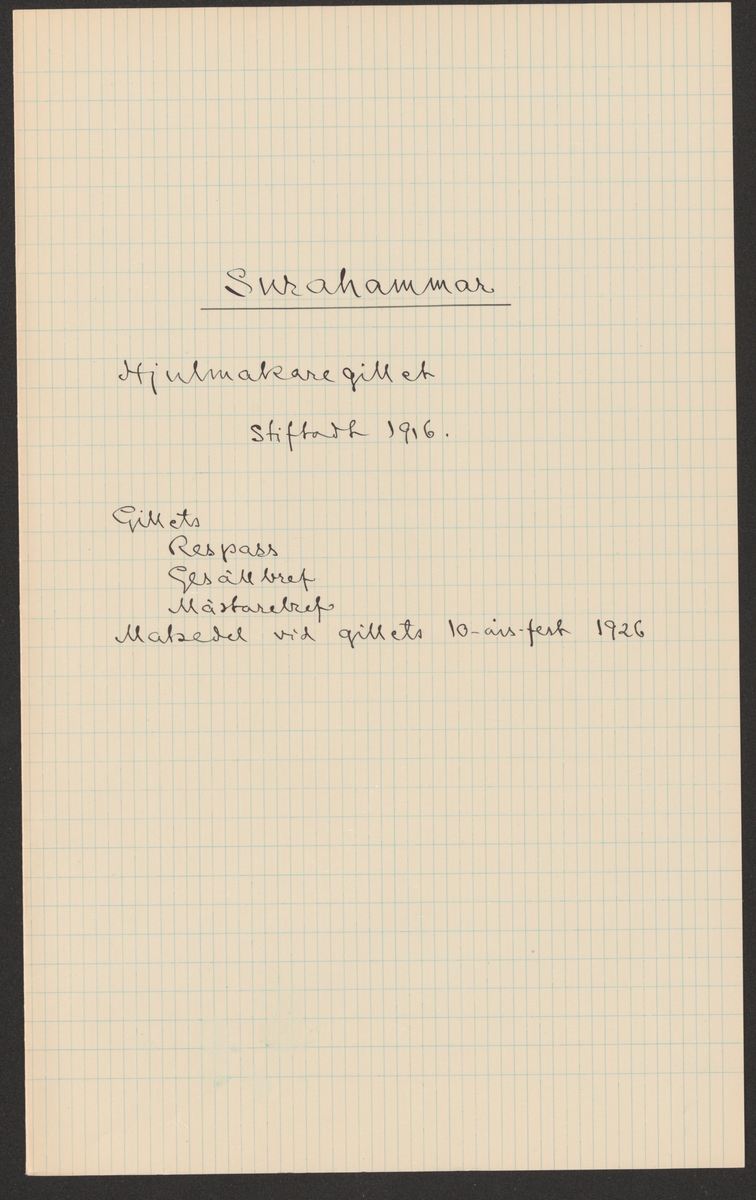 Surahammar
Hjulmakaregillet
Stiftadt 1916.
Gillets
Respass
Gesällbref
Mästarebref
Matsedel vid gillets 10-års-fest 1926